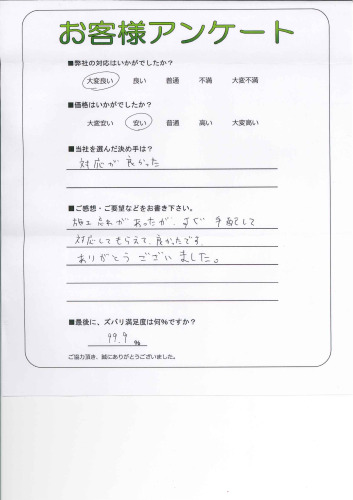 お客様アンケート
■弊社の対応はいかがでしたか?
大変良い 良い 普通 不満 大変不満
■価格はいかがでしたか?
大変安い 安い 普通 高い 大変高い
■当社を選んだ決め手は?
対応が良かった
■ご感想・ご要望などをお書き下さい。
施工忘れがあったが、すぐ手配して
対応してもらえて、良かったです。
ありがとうございました。
■最後に、ズバリ満足度は何%ですか?
99.9 %
ご協力頂き、誠にありがとうございました。